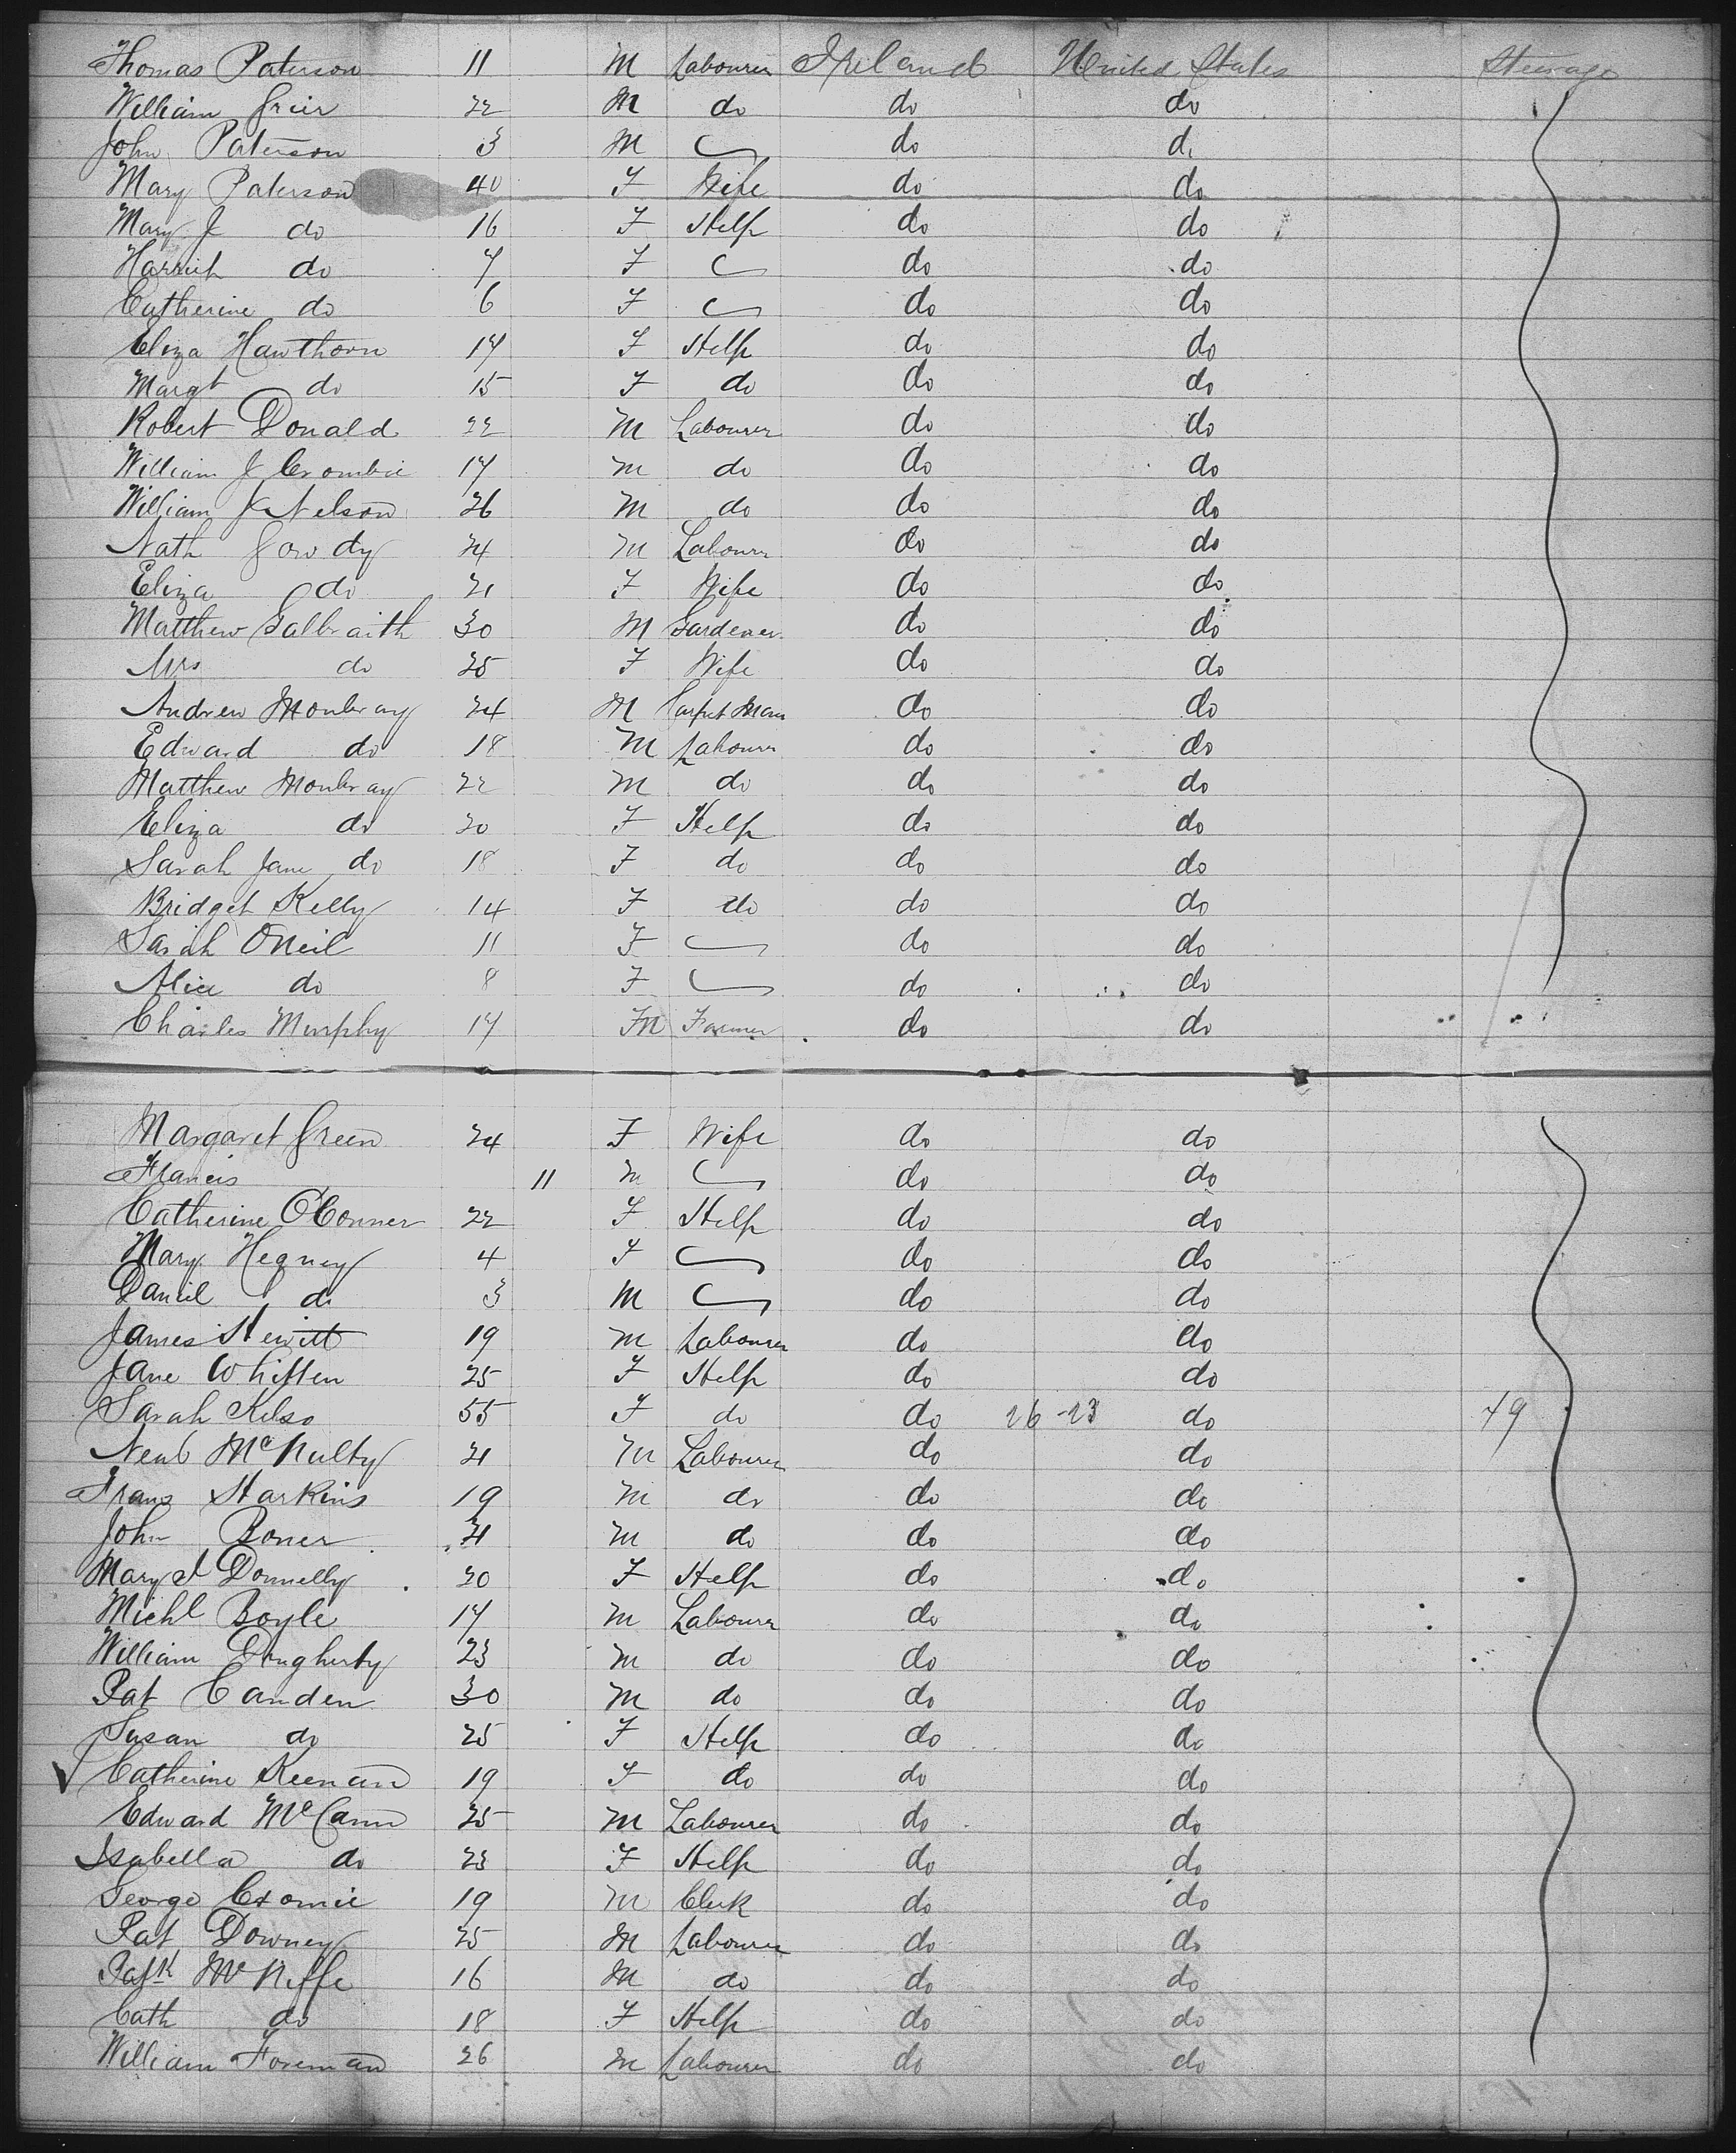 Thomas Paterson 11 M Labourer Ireland United States Steerage
William Grier 22 M do do do
John Paterson 3 M do do
Mary Paterson 40 F Wife do do
Mary J do 16 F Help do do
Harriet do 7 F do do
Catherine do 6 F do do
Eliza Hawthorn 17 F Help do do
Margt do 15 F do do do
Robert Donald 22 M Labourer do do
William J Crombie 17 M do do do
William J Nelson 26 M do do do
Nath Gowdy 24 M Labourer do do
Eliza do 21 F Wife do do
Matthew Galbraith 30 M Gardener do do
Mrs do 25 F Wife do do
Andrew Monbray 24 M Carpet Man do do
Edward do 18 M Labourer do do
Matthew Monbray 22 M do do do
Eliza do 20 F Help do do
Sarah Jane do 18 F do do do
Bridget Kelly 14 F do do do
Sarah ONeil 11 F do do
Alice do 8 F do do
Charles Murphy 17 M Farmer do do
Margaret Green 24 F Wife do do
Francis 11 M do do
Catherine OConner 22 F Help do do
Mary Hegney 4 F do do
Daniel do 3 M do do
James Hewitt 19 M Labourer do do
Jane Whitten 25 F Help do do
Sarah Kelso 55 F do do 26-23 do 49
McNulty 21 M Labourer do do
Frans Harkins 19 M do do do
John Boner 21 M do do do
Mary J Donnelly 20 F Help do do
Michl Boyle 17 M Labourer do do
William Dougherty 23 M do do do
Pat Canden 30 M do do do
Susan do 25 F Help do do
Catherine Keenan 19 F do do do
Edward McCann 25 M Labourer do do
Isabella do 23 F Help do do
George Cromie 19 M Clerk do do
Pat Downey 25 M Labourer do do
Patk McNiffe 16 M do do do
Cath do 18 F Help do do
William Foreman 26 M Labourer do do